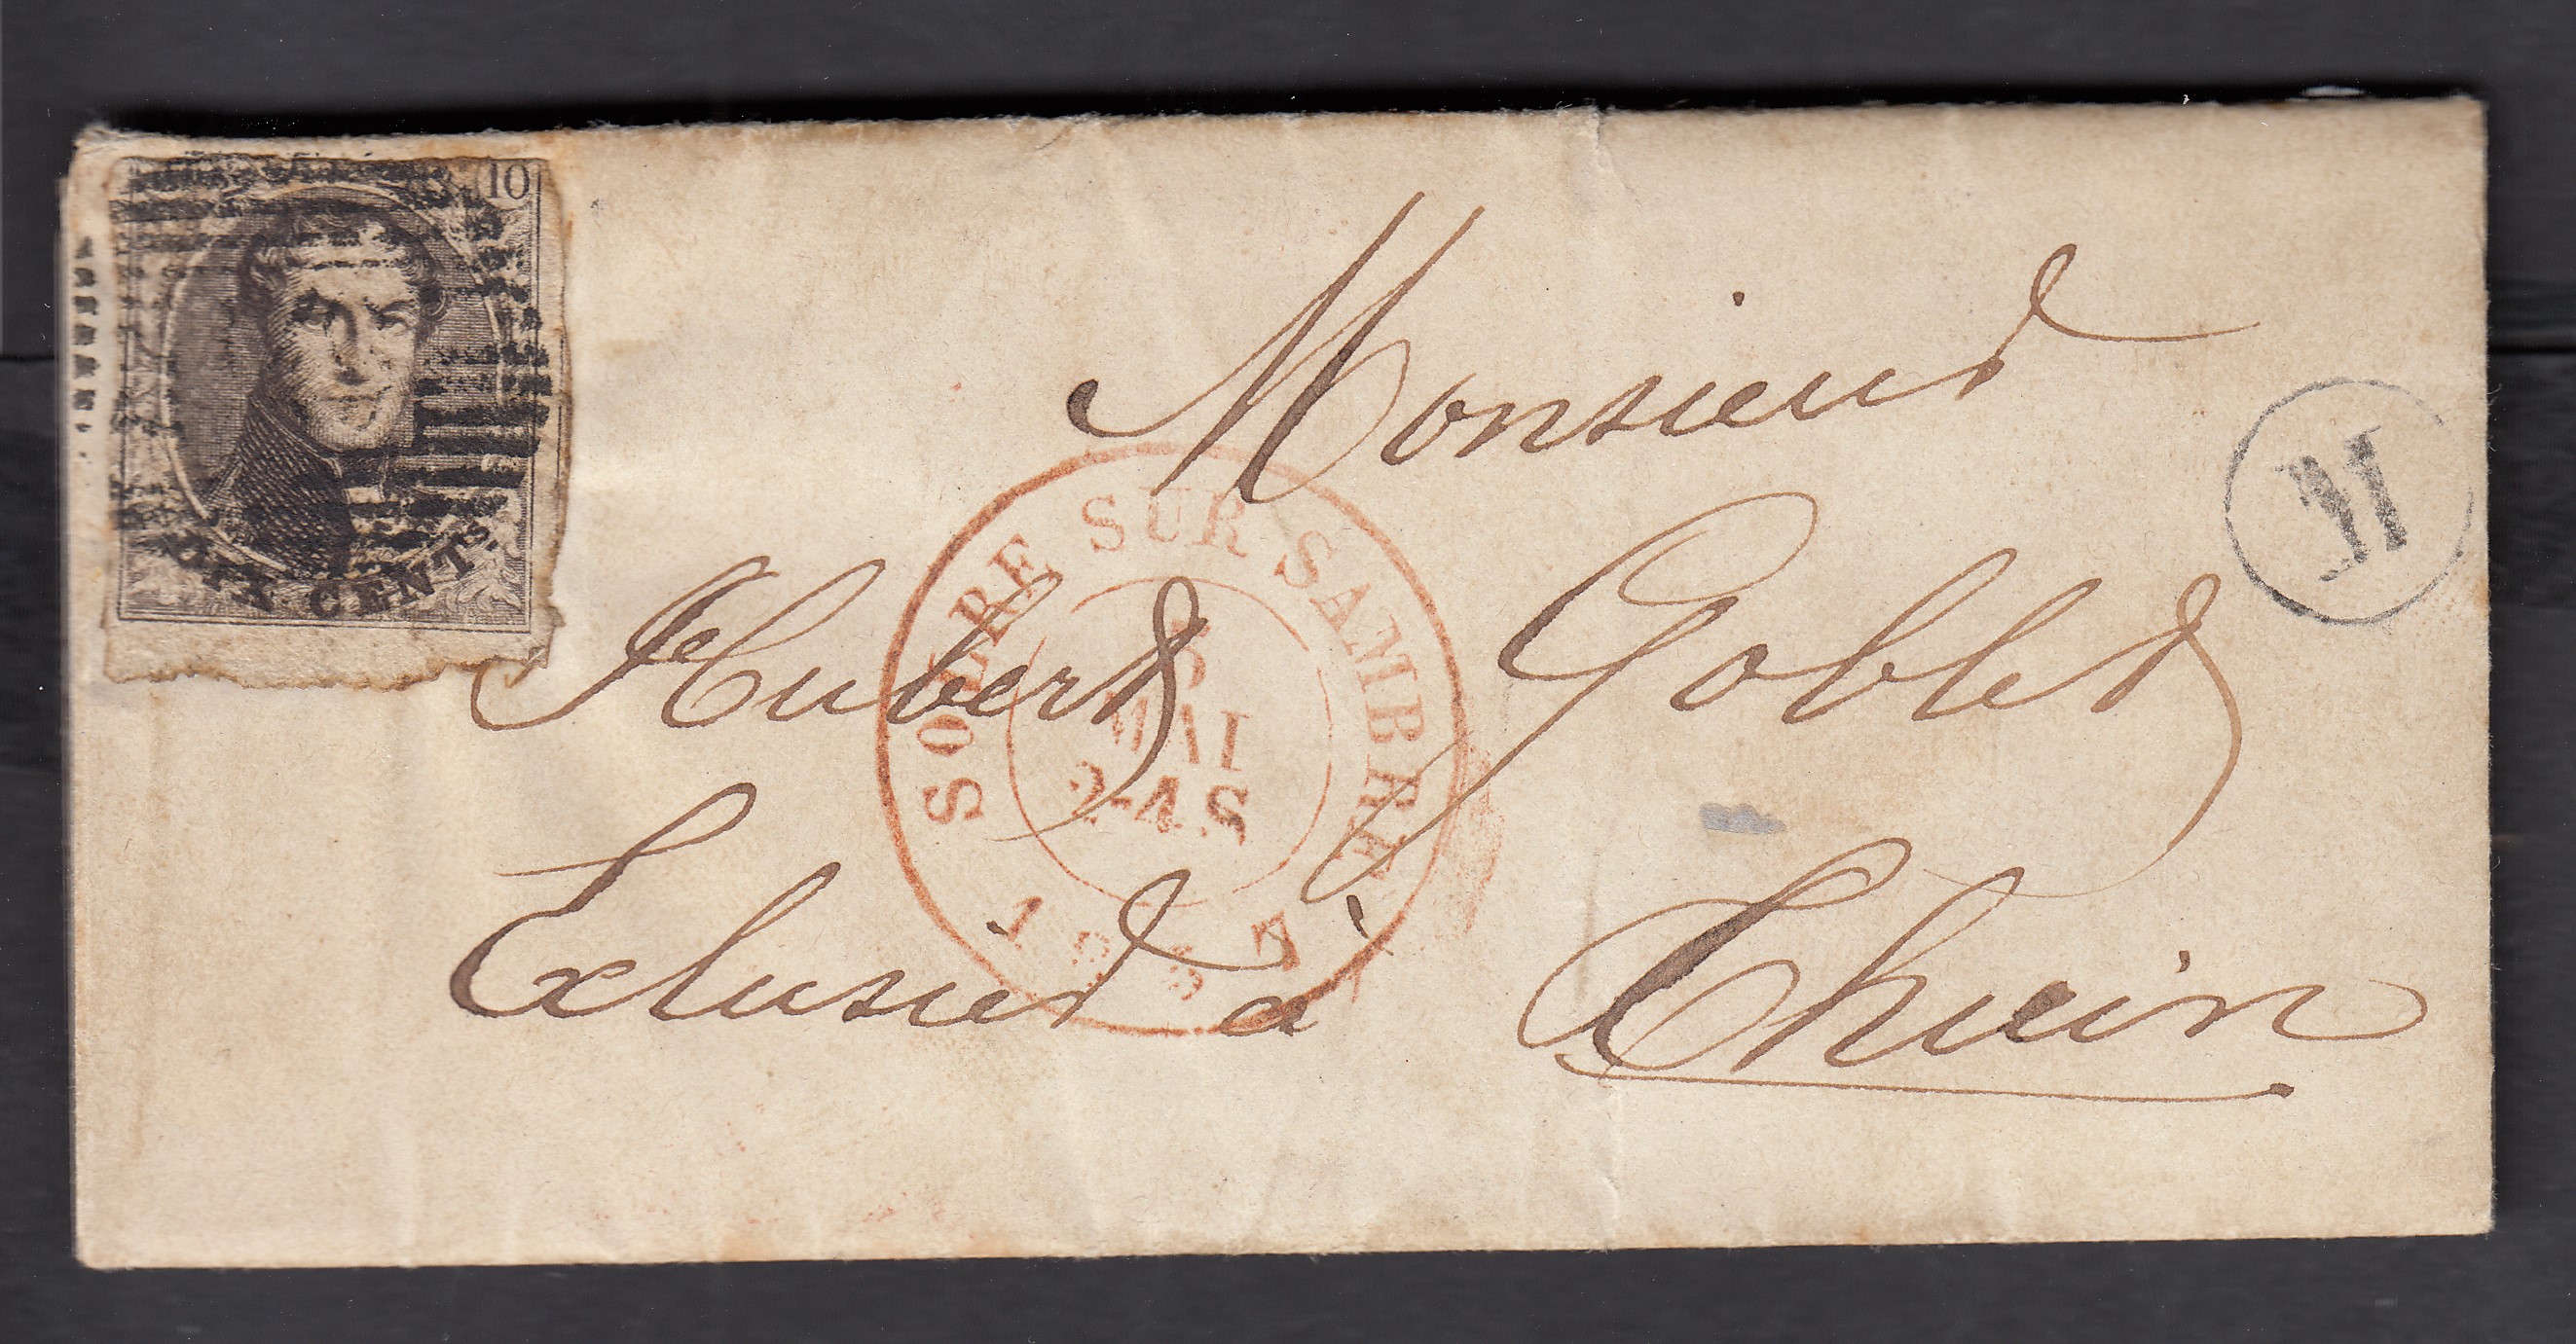 10
DIX CENTS.
Monsieur
Hubert Goblet
Exlusier à Thuin
SOLRE SUR SAMBRE
5
MAI
2-4 S
1857
H